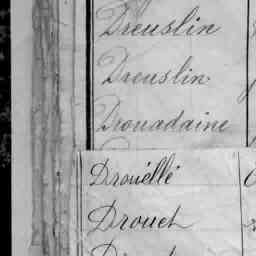 Dreuslin
Dreuslin
Drouadaine
Drouéllé
Drouet